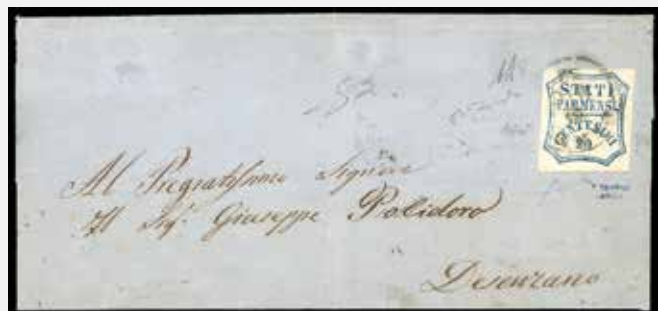 STATI
PARMENSI
CENTESIMI
20
Al Pregiatissimo Signore
Il Sig: Giuseppe Polidoro
Desenzano